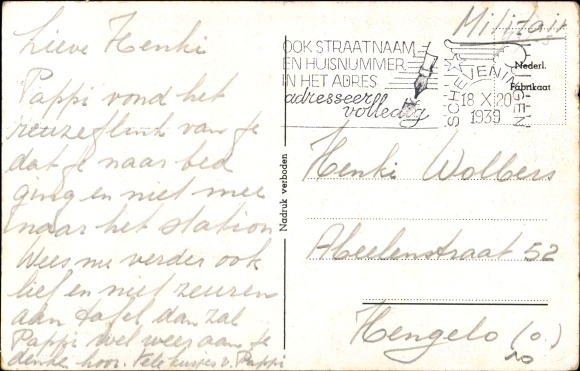 Lieve Henki
Pappi vond het
reuzeflink van je
dat je naar bed
ging en niet mee
naar het station
Wees nu verder ook
lief en niet zeuren
aan tafel dan zal
Pappi wel weer aan je
denke hoor. Vele kusjes v. Pappi
Nadruk verboden
OOK STRAATNAAM
EN HUISNUMMER
IN HET ADRES
adresseer
volledig
SCHEVENINGEN
18 X 20
1939
Militair
Nederl.
Fabrikaat
Henki Wolbers
Abeelenstraat 52
Hengelo (o.)